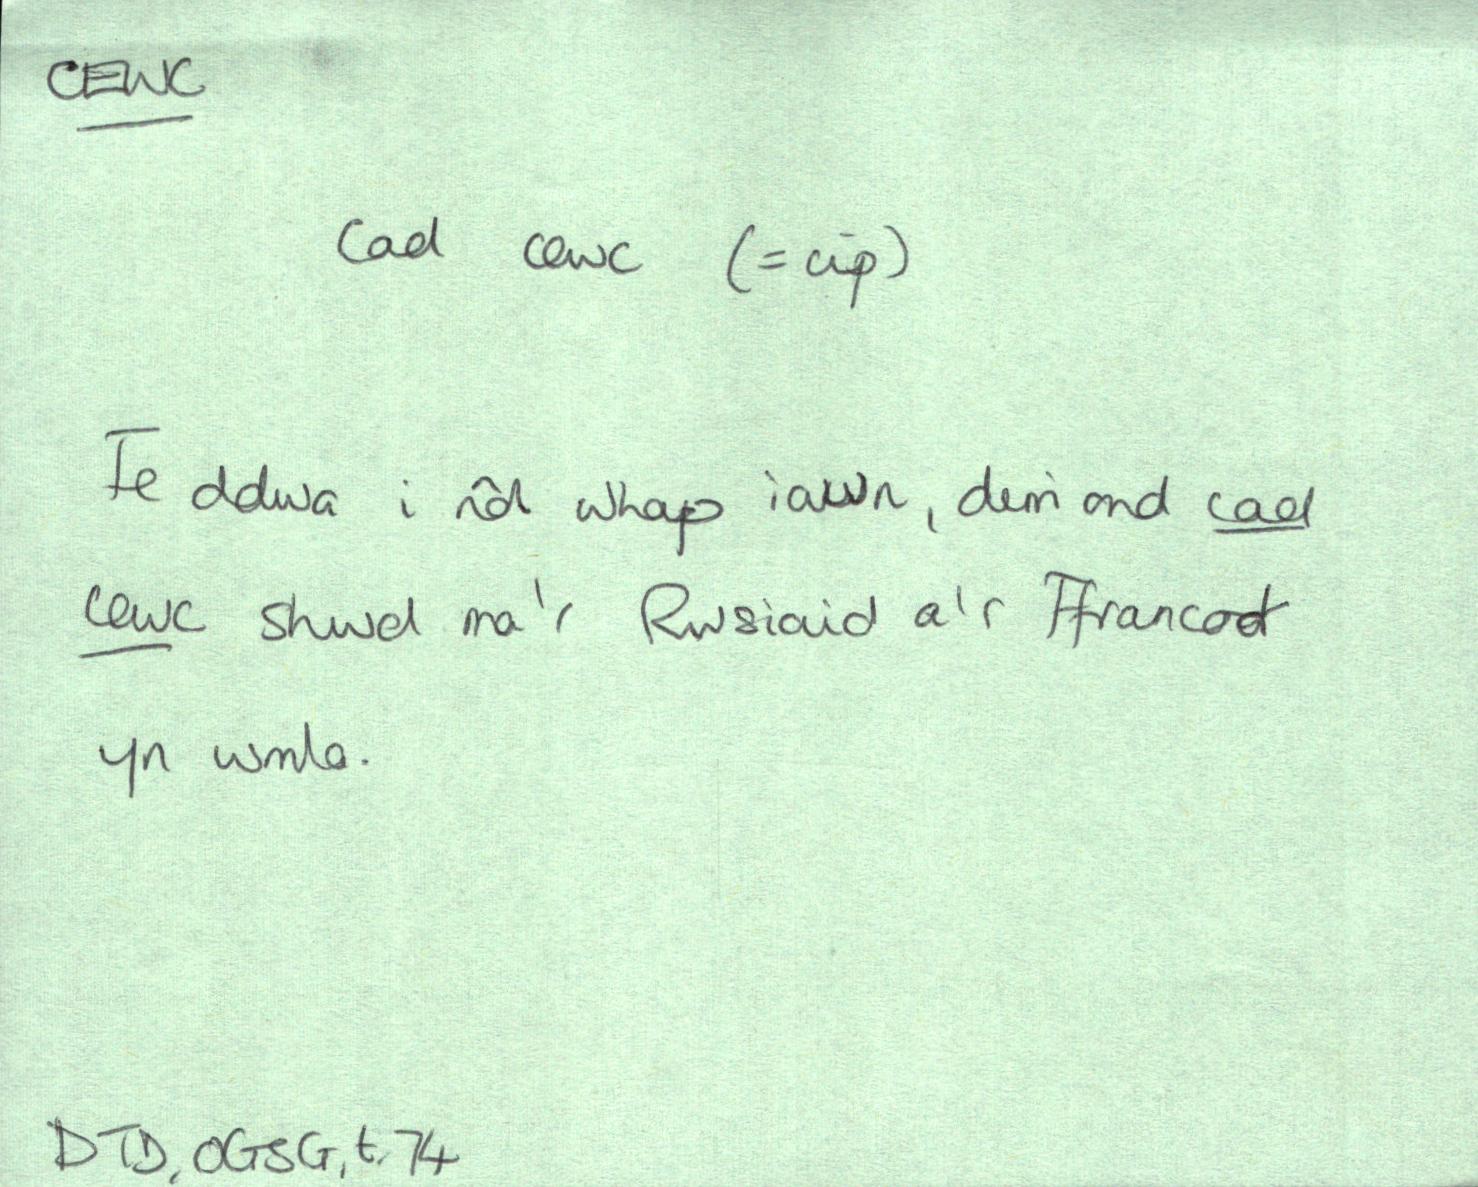 CEWC
Cad cewc (= cip)
Fe ddwa i nôl whap iawn, dim ond cad
cewc shwd ma'r Rwsiaid a'r Ffrancod
yn wmla.
DTD, OGSG, t. 74